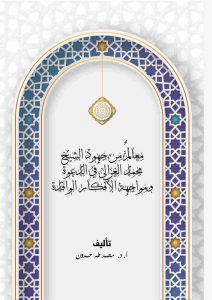 معالم من جهود الشيخ
محمد الغزالي في الدعوة
ومواجهة الأفكار الوافدة
تأليف
أ.د. محمد طه حمدون